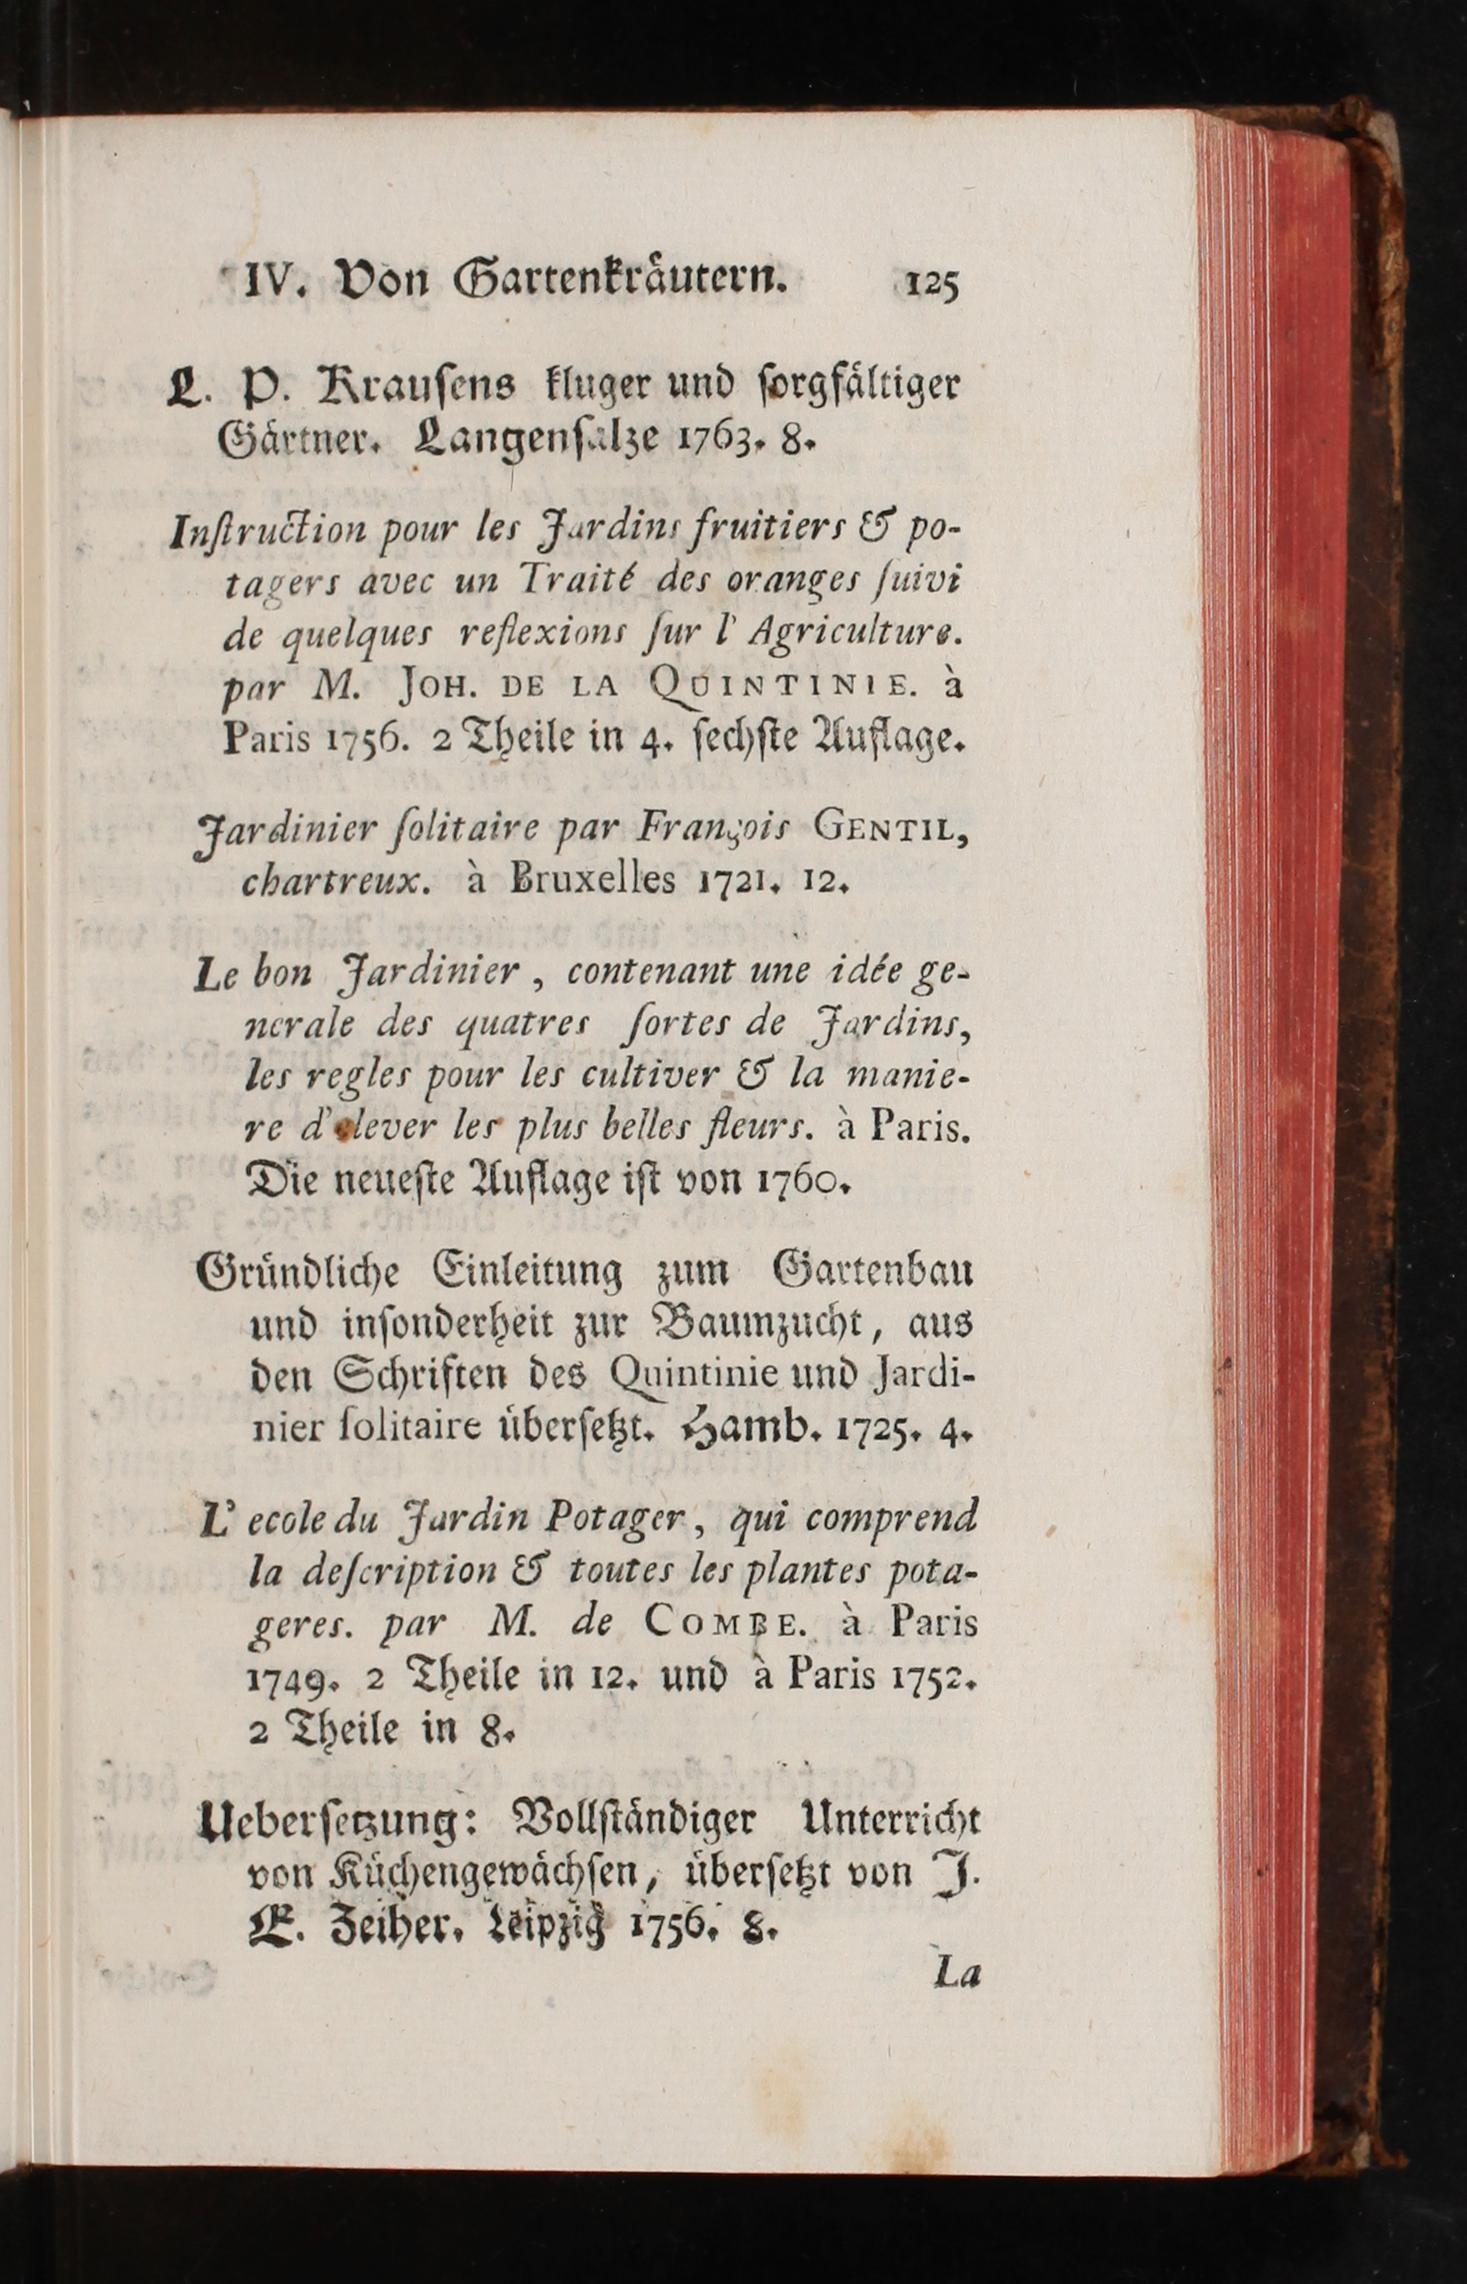 IV. Von Gartenkräutern. 125
L. P. Krauſens kluger und ſorgfältiger
Gärtner. Langenſalze 1763. 8.
Inſtruction pour les Jardins fruitiers & po-
tagers avec un Traité des oranges ſuivi
de quelques reflexions ſur l' Agriculture.
par M. JOH. DE LA QUINTINIE. à
Paris 1756. 2 Theile in 4. ſechſte Auflage.
Jardinier ſolitaire par François GENTIL,
chartreux. à Bruxelles 1721. 12.
Le bon Jardinier, contenant une idée ge-
nerale des quatres ſortes de Jardins,
les regles pour les cultiver & la manie-
re d'elever les plus belles fleurs. à Paris.
Die neueſte Auflage iſt von 1760.
Gründliche Einleitung zum Gartenbau
und inſonderheit zur Baumzucht, aus
den Schriften des Quintinie und Jardi-
nier ſolitaire überſetzt. Hamb. 1725. 4.
L' ecole du Jardin Potager, qui comprend
la deſcription & toutes les plantes pota-
geres. par M. de COMBE. à Paris
1749. 2 Theile in 12. und à Paris 1752.
2 Theile in 8.
Ueberſetzung: Vollſtändiger Unterricht
von Küchengewächſen, überſetzt von J.
E. Zeiher. Leipzig 1756. 8.
La